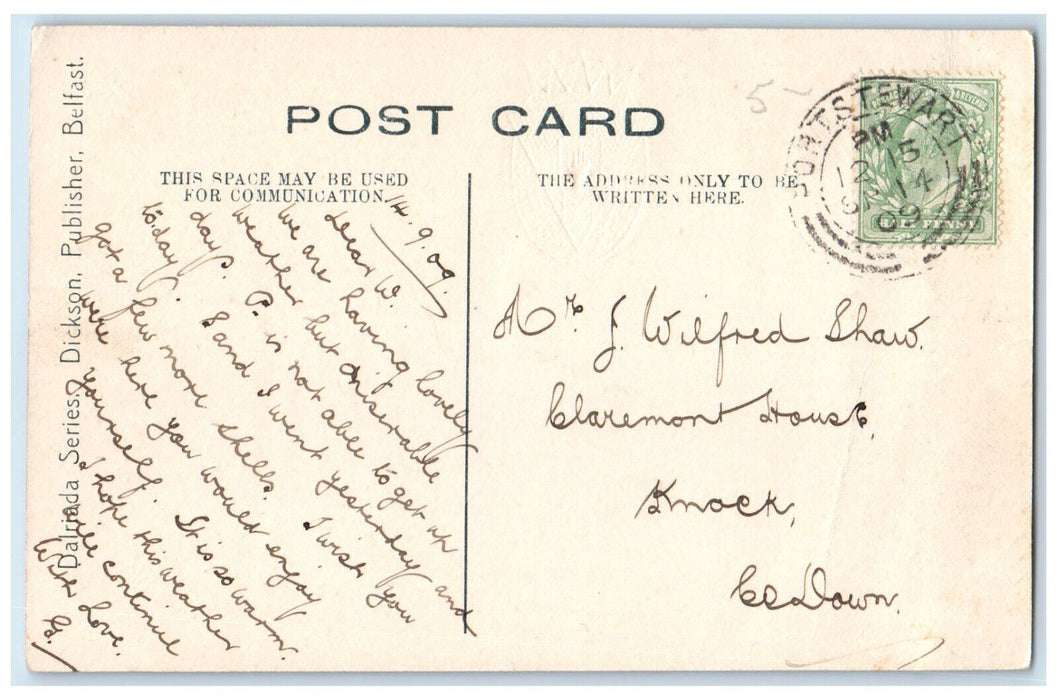 POST CARD
THIS SPACE MAY BE USED
FOR COMMUNICATION.
THE ADDRESS ONLY TO BE
WRITTEN HERE.
Dalriada Series. Dickson, Publisher, Belfast.
5
PORTSTEWART
PM
12 15
14
09
14.9.09.
Dear W.
We are having lovely
weather but miserable
days. P. is not able to get up
to:day. S and I went yesterday and
got a few more shells. I wish you
were here you would enjoy
yourself. It is so warm.
I hope this weather
will continue
With Love.
G.
Mr. J. Wilfred Shaw.
Claremont House,
Knock,
Co Down.